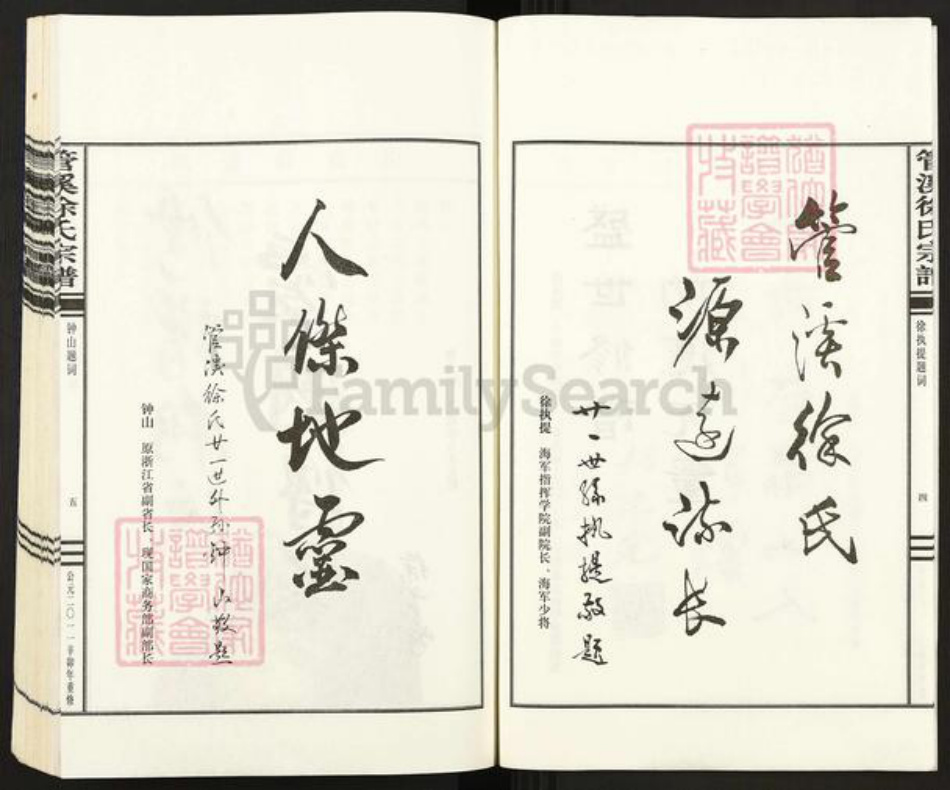 管溪徐氏宗譜
徐执提题词
四
管溪徐氏
源遠流长
廿一世孫执提敬題
徐执提 海军指挥学院副院长、海军少将
猶他家譜學會收藏
人傑地靈
管溪徐氏廿一世外孙钟山敬題
钟山 原浙江省副省长、现国家商务部副部长
猶他家譜學會收藏
管溪徐氏宗譜
钟山题词
五
公元二〇一一辛卯年重修
FamilySearch